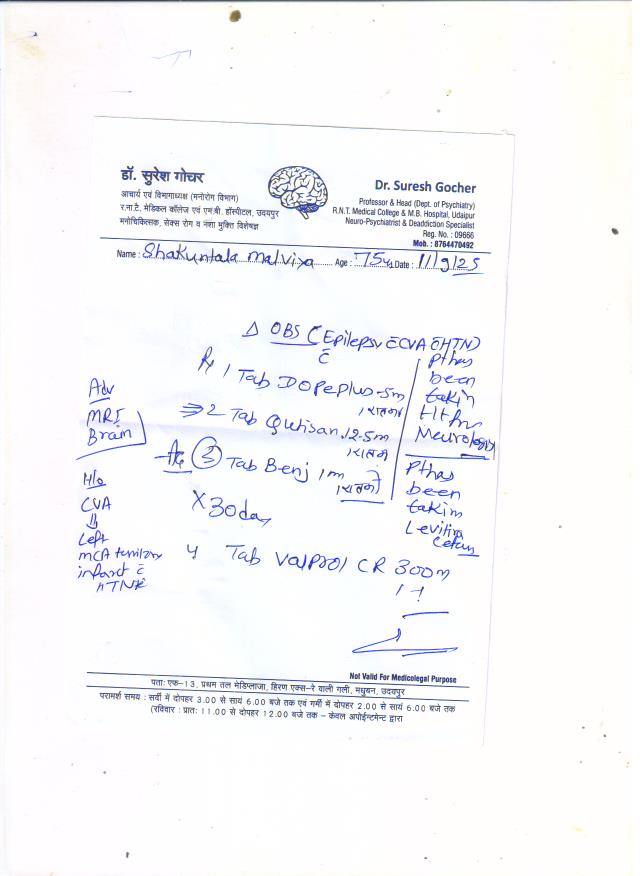 डॉ. सुरेश गोचर
आचार्य एवं विभागाध्यक्ष (मनोरोग विभाग)
र.ना.टै. मेडिकल कॉलेज एवं एम.बी. हॉस्पीटल, उदयपुर
मनोचिकित्सक, सेक्स रोग व नशा मुक्ति विशेषज्ञ
Dr. Suresh Gocher
Professor & Head (Dept. of Psychiatry)
R.N.T. Medical College & M.B. Hospital, Udaipur
Neuro-Psychiatrist & Deaddiction Specialist
Reg. No. : 09666
Mob. : 8764470492
Name : Shakuntala Malviya Age : 75y Date : 11/9/25
Δ OBS (Epilepsy c̄ CVA c̄ HTN)
c̄
Rx 1 Tab DOPEPlus-5m
1 रात को
⇒ 2 Tab Qutisan 12.5m
1 रात को
3 Tab Benj 1m
1 रात को
X 30 day
4 Tab Valprol CR 300m
1 - 1
Pt has
been
takin
tt fr
Neurologist
Pt has
been
takim
Levitira
cetam
Adv
MRI
Brain
H/o
CVA
⇓
Left
MCA territory
infarct c̄
HTN
Not Valid For Medicolegal Purpose
पता: एफ-13, प्रथम तल मेडिप्लाजा, हिरण एक्स-रे वाली गली, मधुबन, उदयपुर
परामर्श समय : सर्दी में दोपहर 3.00 से सायं 6.00 बजे तक एवं गर्मी में दोपहर 2.00 से सायं 6.00 बजे तक
(रविवार : प्रातः 11.00 से दोपहर 12.00 बजे तक - केवल अपोईन्टमेन्ट द्वारा